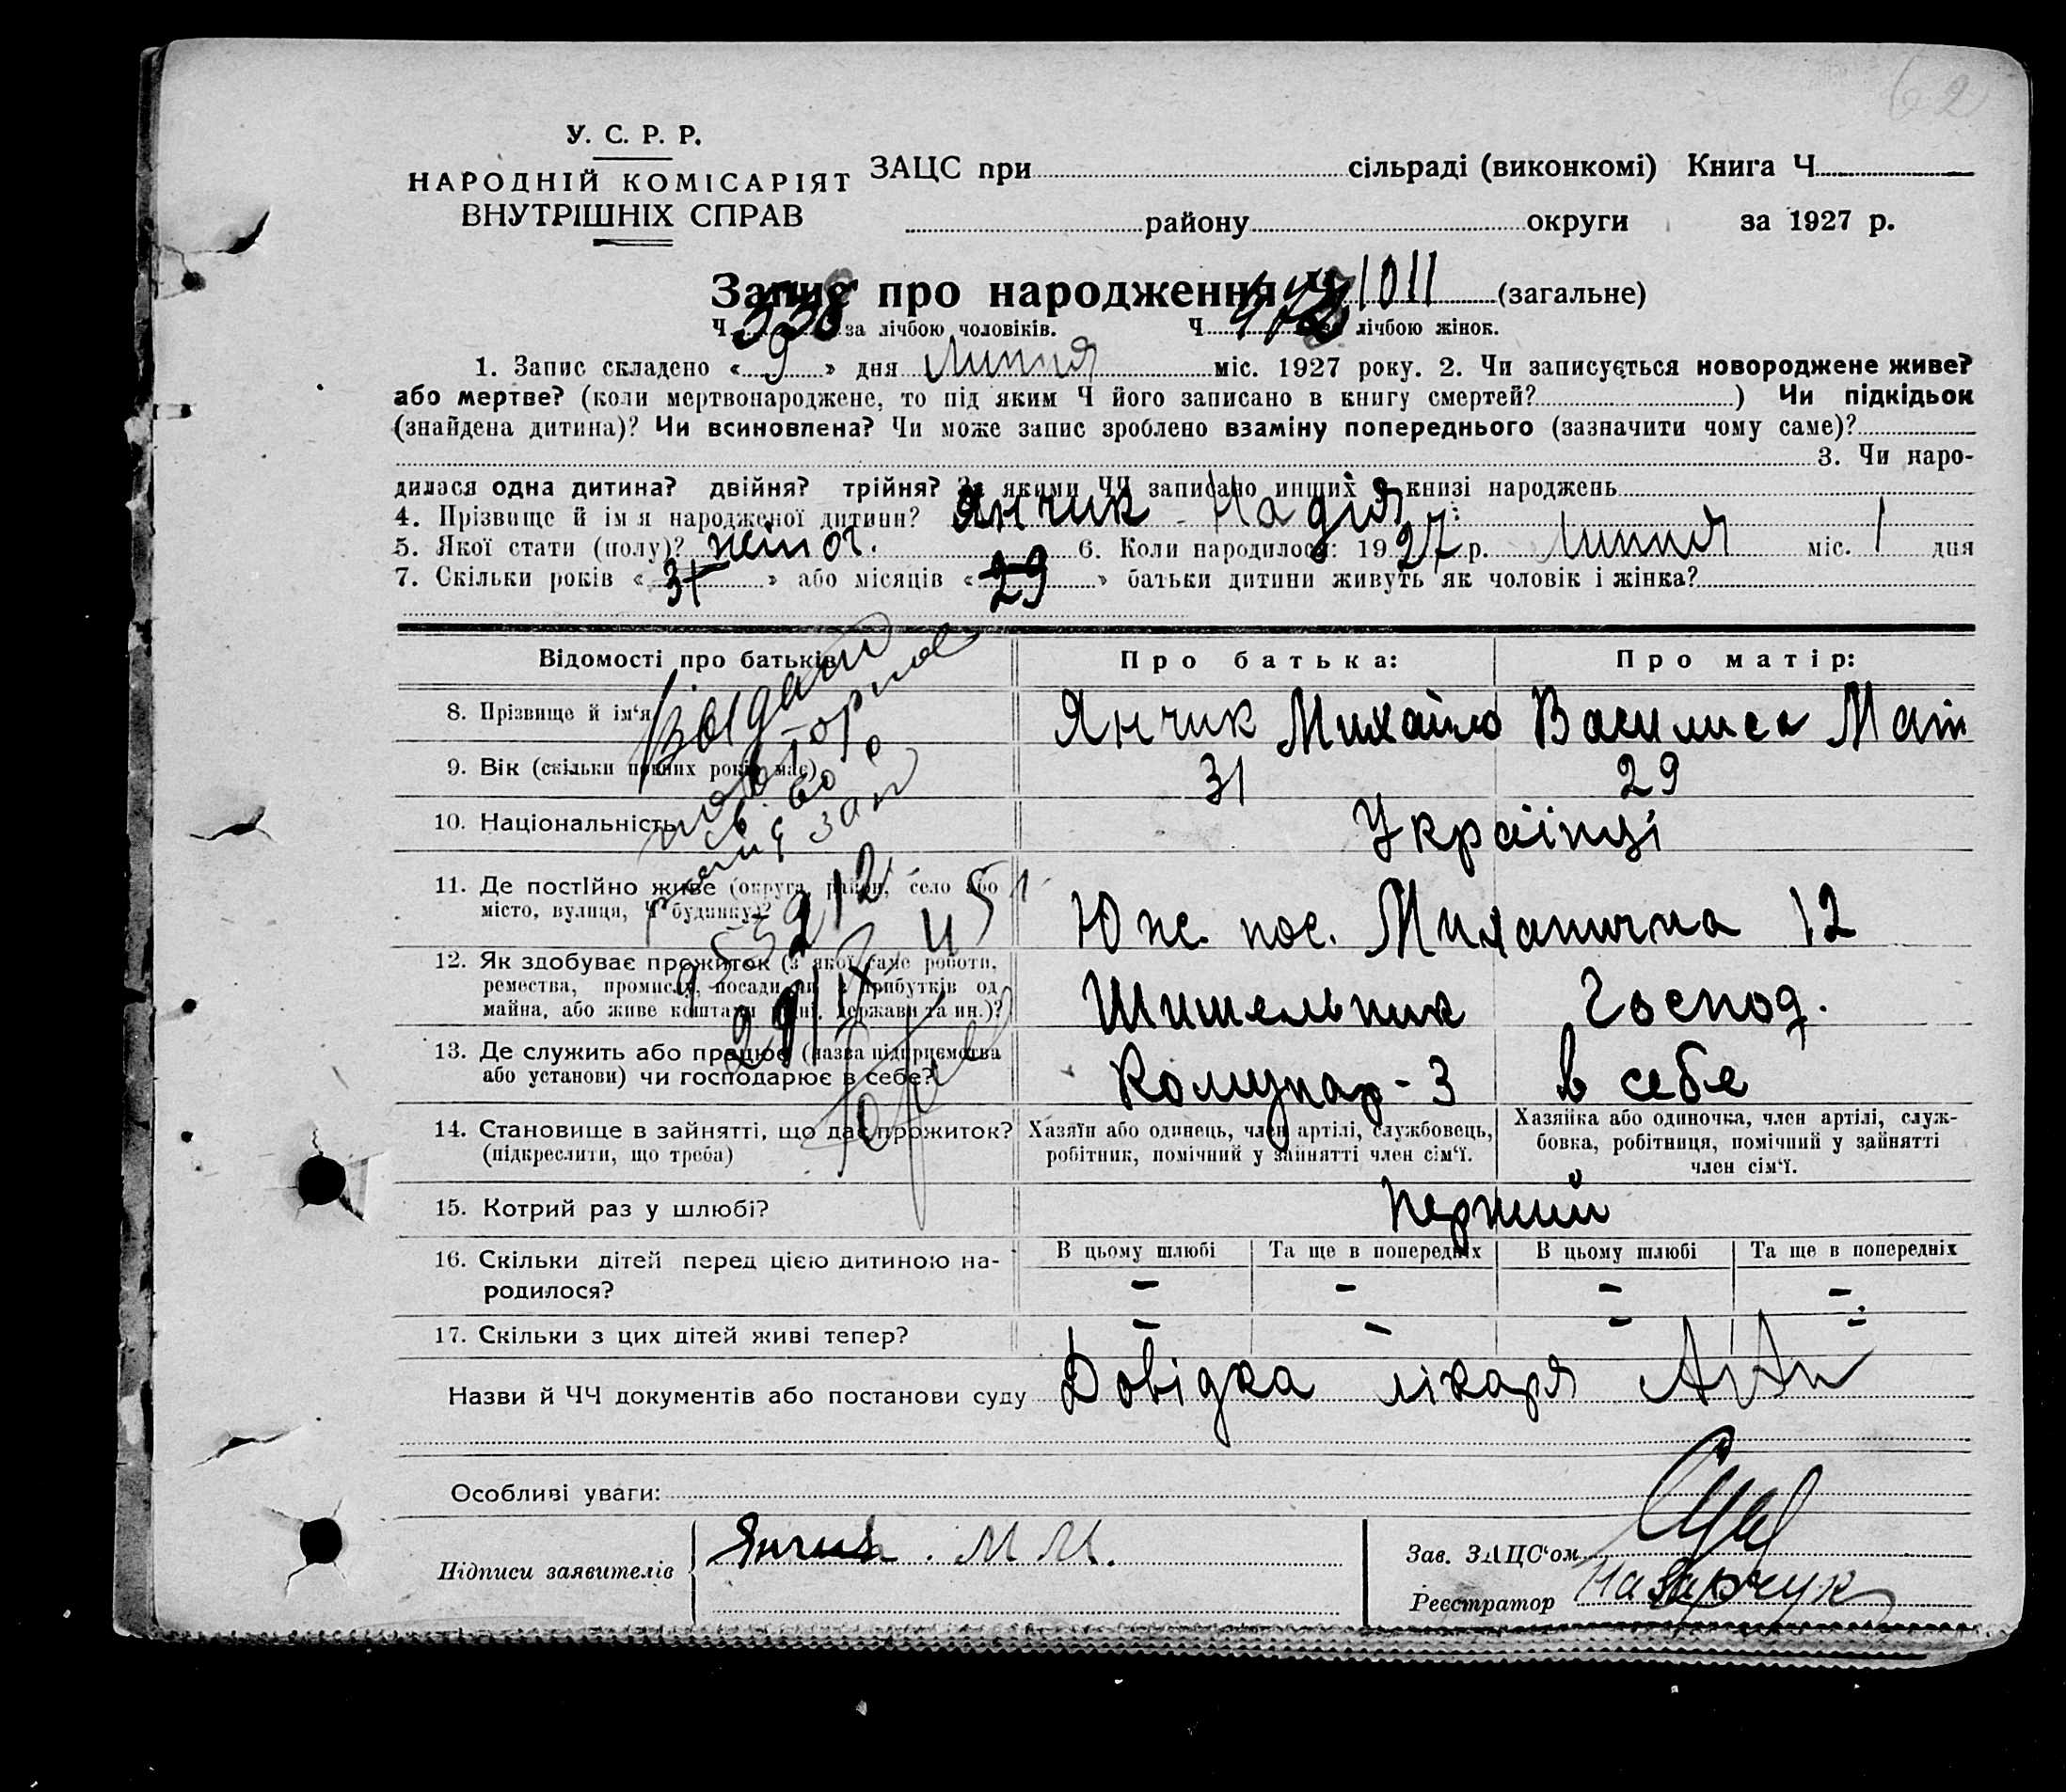 62
У. С. Р. Р.
НАРОДНІЙ КОМІСАРІЯТ
ВНУТРІШНІХ СПРАВ
ЗАЦС при сільраді (виконкомі) Книга Ч.
району округи за 1927 р.
Запис про народження Ч 1011 (загальне)
Ч. 538 за лічбою чоловіків. Ч. за лічбою жінок.
1. Запис складено « 9 » дня Липня міс. 1927 року. 2. Чи записується новороджене живе?
або мертве? (коли мертвонароджене, то під яким Ч його записано в книгу смертей? ) Чи підкідьок
(знайдена дитина)? Чи всиновлена? Чи може запис зроблено взаміну попереднього (зазначити чому саме)?
3. Чи наро-
дилася одна дитина? двійня? трійня? За якими ЧЧ записано инших в книзі народжень
4. Прізвище й ім я народженої дитини? Янчик Надія
5. Якої стати (полу)? жіноч. 6. Коли народилося: 1927 р. Липня міс. 1 дня
7. Скільки років « 31 » або місяців « 29 » батьки дитини живуть як чоловік і жінка?
Відомості про батьків Про батька: Про матір:
8. Прізвище й ім'я Янчик Михайло Василиса Мат
9. Вік (скільки повних років має) 31 29
10. Національність Українці
11. Де постійно живе (округа, район, село або
місто, вулиця, Ч будинку)? Юж. пос. 12
12. Як здобуває прожиток (з якої саме роботи,
ремества, промислу, посади чи з прибутків од
майна, або живе коштами держави та ин.)? Господ.
13. Де служить або працює (назва підприємства
або установи) чи господарює в себе? Комунар-3 в себе
14. Становище в зайнятті, що дає прожиток?
(підкреслити, що треба)
Хазяїн або одинець, член артілі, службовець,
робітник, помічний у зайнятті член сім'ї.
Хазяйка або одиночка, член артілі, служ-
бовка, робітниця, помічний у зайнятті
член сім'ї.
15. Котрий раз у шлюбі? перший
16. Скільки дітей перед цією дитиною на-
родилося?
В цьому шлюбі Та ще в попередніх В цьому шлюбі Та ще в попередніх
- - - -
17. Скільки з цих дітей живі тепер? - - - -
Назви й ЧЧ документів або постанови суду Довідка лікаря
Особливі уваги:
Підписи заявителів Янчик. М М.
Зав. ЗАЦС'ом
Реєстратор Назарчук
Выдано
повторное
св. во о